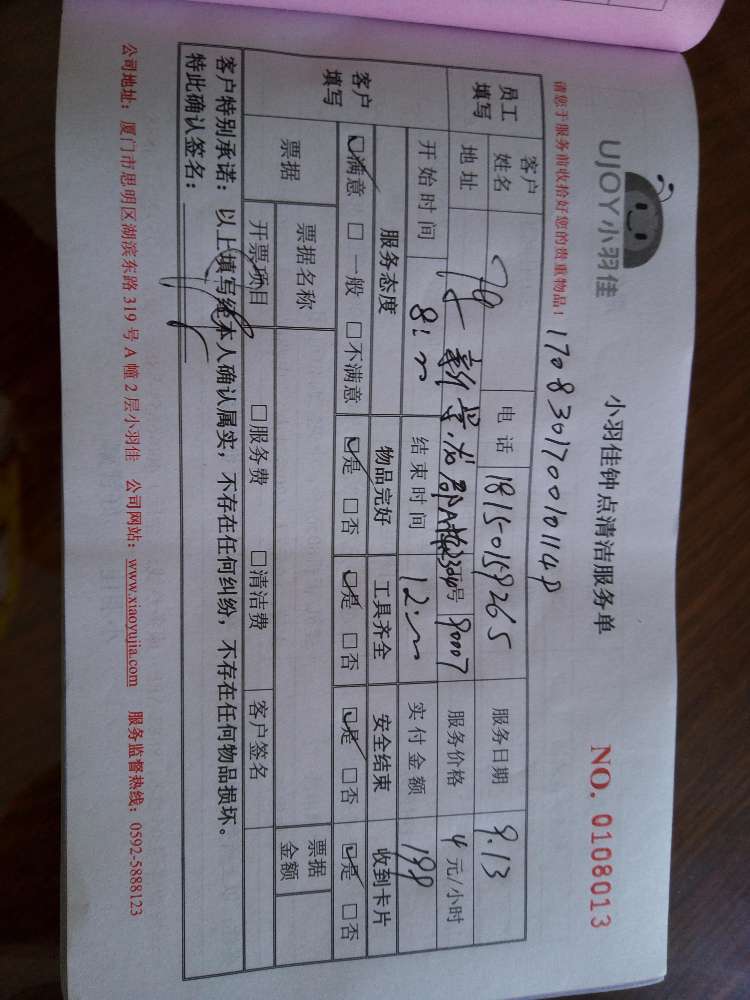 UJOY小羽佳
小羽佳钟点清洁服务单
NO. 0108013
请您于服务前收拾好您的贵重物品！
员工填写 客户姓名 电话 18150159265 服务日期 9.13
地址 号 9007 服务价格 4 元/小时
客户填写 开始时间 8: 结束时间 12: 实付金额 198
服务态度 物品完好 工具齐全 安全结束 收到卡片
☑满意 □一般 □不满意 ☑是 □否 ☑是 □否 ☑是 □否 ☑是 □否
票据 票据名称 票据金额
开票项目 □服务费 □清洁费 客户签名
客户特别承诺：以上填写经本人确认属实，不存在任何纠纷，不存在任何物品损坏。
特此确认签名：
公司地址：厦门市思明区湖滨东路 319 号 A 幢 2 层小羽佳 公司网站：www.xiaoyujia.com 服务监督热线：0592-5888123